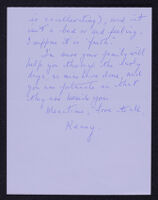 is exultation), and it
isn't a bad or sad feeling.
I suppose it is "faith."
I'm sure your family will
help you through the holy
days as mine have done, and
you are fortunate in that
they are beside you.
Meantime, love to all
Kenny